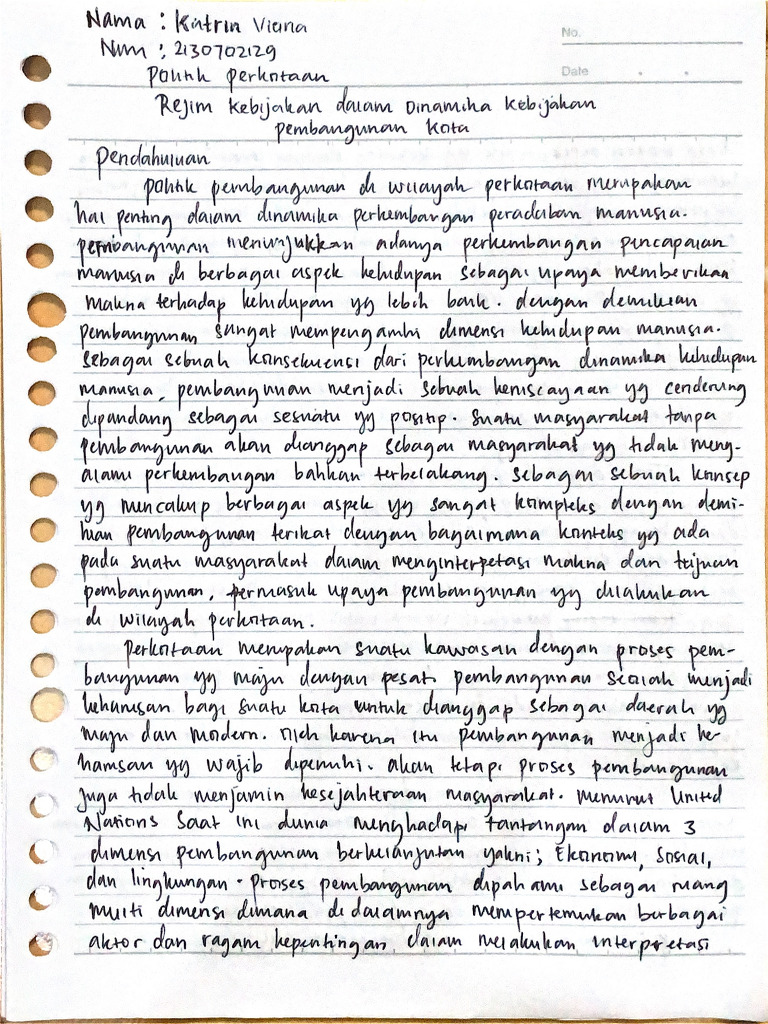 Nama : Katrin Viena
No.
Nim : 2130702129
Politik perkotaan
Date
Rejim Kebijakan dalam Dinamika Kebijakan
pembangunan Kota
Pendahuluan
politik pembangunan di wilayah perkotaan merupakan
hal penting dalam dinamika perkembangan peradaban manusia.
pembangunan menunjukkan adanya perkembangan pencapaian
manusia di berbagai aspek kehidupan sebagai upaya memberikan
makna terhadap kehidupan yg lebih baik. dengan demikian
pembangunan sangat mempengaruhi dimensi kehidupan manusia.
Sebagai sebuah konsekuensi dari perkembangan dinamika kehidupan
manusia, pembangunan menjadi sebuah keniscayaan yg cenderung
dipandang sebagai sesuatu yg positip. Suatu masyarakat tanpa
pembangunan akan dianggap sebagai masyarakat yg tidak meng-
alami perkembangan bahkan terbelakang. Sebagai sebuah konsep
yg mencakup berbagai aspek yg sangat kompleks dengan demi-
kian pembangunan terikat dengan bagaimana konteks yg ada
pada suatu masyarakat dalam menginterpetasi makna dan tujuan
pembangunan, termasuk upaya pembangunan yg dilakukan
di wilayah perkotaan.
Perkotaan merupakan suatu kawasan dengan proses pem-
bangunan yg maju dengan pesat. pembangunan seolah menjadi
keharusan bagi suatu kota untuk dianggap sebagai daerah yg
maju dan modern. oleh karena itu pembangunan menjadi ke-
harusan yg wajib dipenuhi. akan tetapi proses pembangunan
juga tidak menjamin kesejahteraan masyarakat. menurut United
Nations Saat ini dunia menghadapi tantangan dalam 3
dimensi pembangunan berkelanjutan yakni; Ekonomi, Sosial,
dan lingkungan. proses pembangunan dipahami sebagai ruang
multi dimensi dimana didalamnya mempertemukan berbagai
aktor dan ragam kepentingan dalam melakukan interpretasi